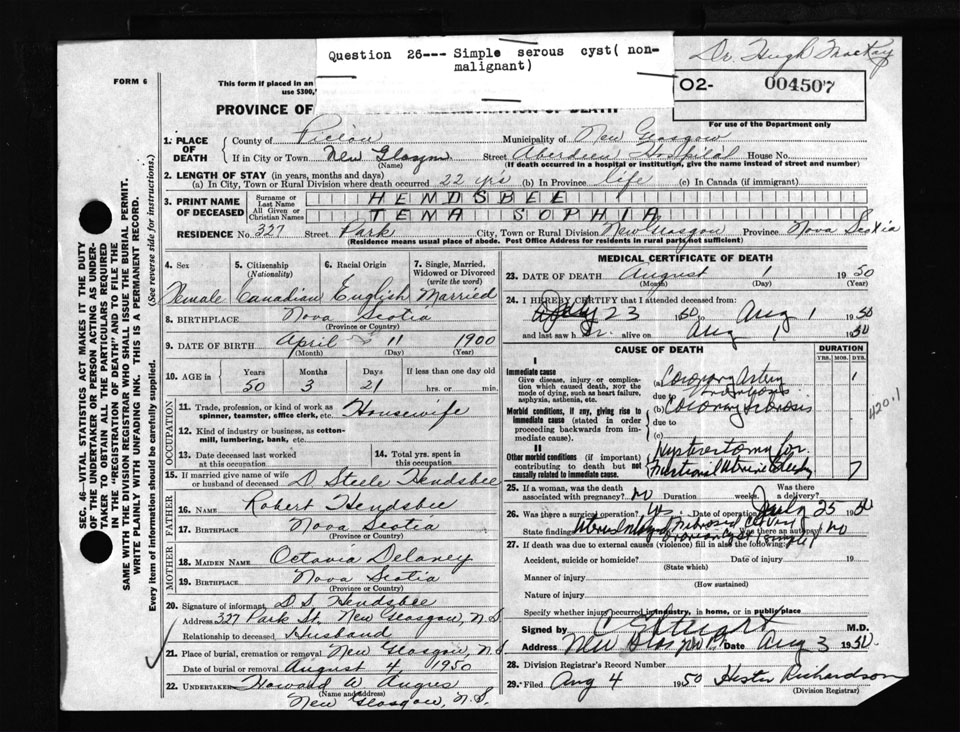 Question 26--- Simple serous cyst( non-
malignant)
Dr. Hugh MacKay
FORM 6
This form if placed in an
use $300,
O2- 004507
For use of the Department only
PROVINCE OF
OF DEATH
1. PLACE OF DEATH
County of Pictou Municipality of New Glasgow
If in City or Town New Glasgow Street Aberdeen Hospital House No.
(Name) (If death occurred in a hospital or institution, give the name instead of street and number)
2. LENGTH OF STAY (in years, months and days)
(a) In City, Town or Rural Division where death occurred 22 yrs (b) In Province life (c) In Canada (if immigrant)
3. PRINT NAME OF DECEASED
Surname or Last Name HENDSBEE
All Given or Christian Names TENA SOPHIA
RESIDENCE No. 327 Street Park City, Town or Rural Division New Glasgow Province Nova Scotia
(Residence means usual place of abode. Post Office Address for residents in rural parts not sufficient)
4. Sex 5. Citizenship (Nationality) 6. Racial Origin 7. Single, Married, Widowed or Divorced (write the word)
Female Canadian English Married
8. BIRTHPLACE Nova Scotia
(Province or Country)
9. DATE OF BIRTH April 11 1900
(Month) (Day) (Year)
10. AGE in Years Months Days If less than one day old
50 3 21 hrs. or min.
OCCUPATION
11. Trade, profession, or kind of work as spinner, teamster, office clerk, etc. Housewife
12. Kind of industry or business, as cotton-mill, lumbering, bank, etc.
13. Date deceased last worked at this occupation
14. Total yrs. spent in this occupation
15. If married give name of wife or husband of deceased D. Steele Hendsbee
FATHER
16. Name Robert Hendsbee
17. Birthplace Nova Scotia
(Province or Country)
MOTHER
18. Maiden Name Octavia Delaney
19. Birthplace Nova Scotia
(Province or Country)
20. Signature of informant D. S. Hendsbee
Address 327 Park St. New Glasgow, N.S
Relationship to deceased Husband
21. Place of burial, cremation or removal New Glasgow, N.S
Date of burial or removal August 4 1950
22. Undertaker Howard W. Angus
(Name and address)
New Glasgow, N.S.
MEDICAL CERTIFICATE OF DEATH
23. DATE OF DEATH August 1 1950
(Month) (Day) (Year)
24. I HEREBY CERTIFY that I attended deceased from:
July 23 1950 to Aug 1 1950
and last saw h er alive on Aug 1 1950
CAUSE OF DEATH DURATION
YRS. MOS. DYS.
I
Immediate cause
Give disease, injury or complication which caused death, not the mode of dying, such as heart failure, asphyxia, asthenia, etc.
(a) Coronary Artery Thrombosis 1
due to
Morbid conditions, if any, giving rise to immediate cause (stated in order proceeding backwards from immediate cause).
(b) Coronary Sclerosis
due to
(c)
420.1
II
Other morbid conditions (if important) contributing to death but not causally related to immediate cause.
Hysterectomy for Functional Uterine Bleeding 7
25. If a woman, was the death associated with pregnancy? no Duration weeks. Was there a delivery?
26. Was there a surgical operation? yes Date of operation July 25 1950
State findings Was there an autopsy? no
27. If death was due to external causes (violence) fill in also the following:
Accident, suicide or homicide? Date of injury 19
(State which)
Manner of injury
(How sustained)
Nature of injury
Specify whether injury occurred in industry, in home, or in public place
Signed by M.D.
Address New Glasgow Date Aug 3 1950
28. Division Registrar's Record Number
29. Filed Aug 4 1950 Hester Richardson
(Division Registrar)
SEC. 46—VITAL STATISTICS ACT MAKES IT THE DUTY
OF THE UNDERTAKER OR PERSON ACTING AS UNDER-
TAKER TO OBTAIN ALL THE PARTICULARS REQUIRED
IN THE "REGISTRATION OF DEATH" AND TO FILE THE
SAME WITH THE DIVISION REGISTRAR WHO SHALL ISSUE THE BURIAL PERMIT.
WRITE PLAINLY WITH UNFADING INK. THIS IS A PERMANENT RECORD.
Every item of information should be carefully supplied. (See reverse side for instructions.)